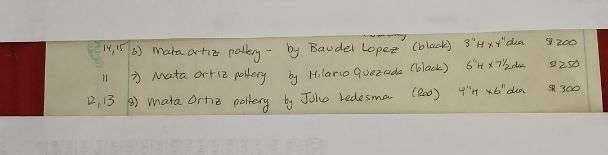 14,15 6) mata ortiz pottery - by Baudel Lopez (black) 3"H x 4" dia $200
11 7) Mata ortiz pottery by Hilario Quezada (black) 6"H x 7½ dia $250
12,13 8) mata Ortiz pottery by Julio Ledesma (Red) 4"H x 6" dia $300